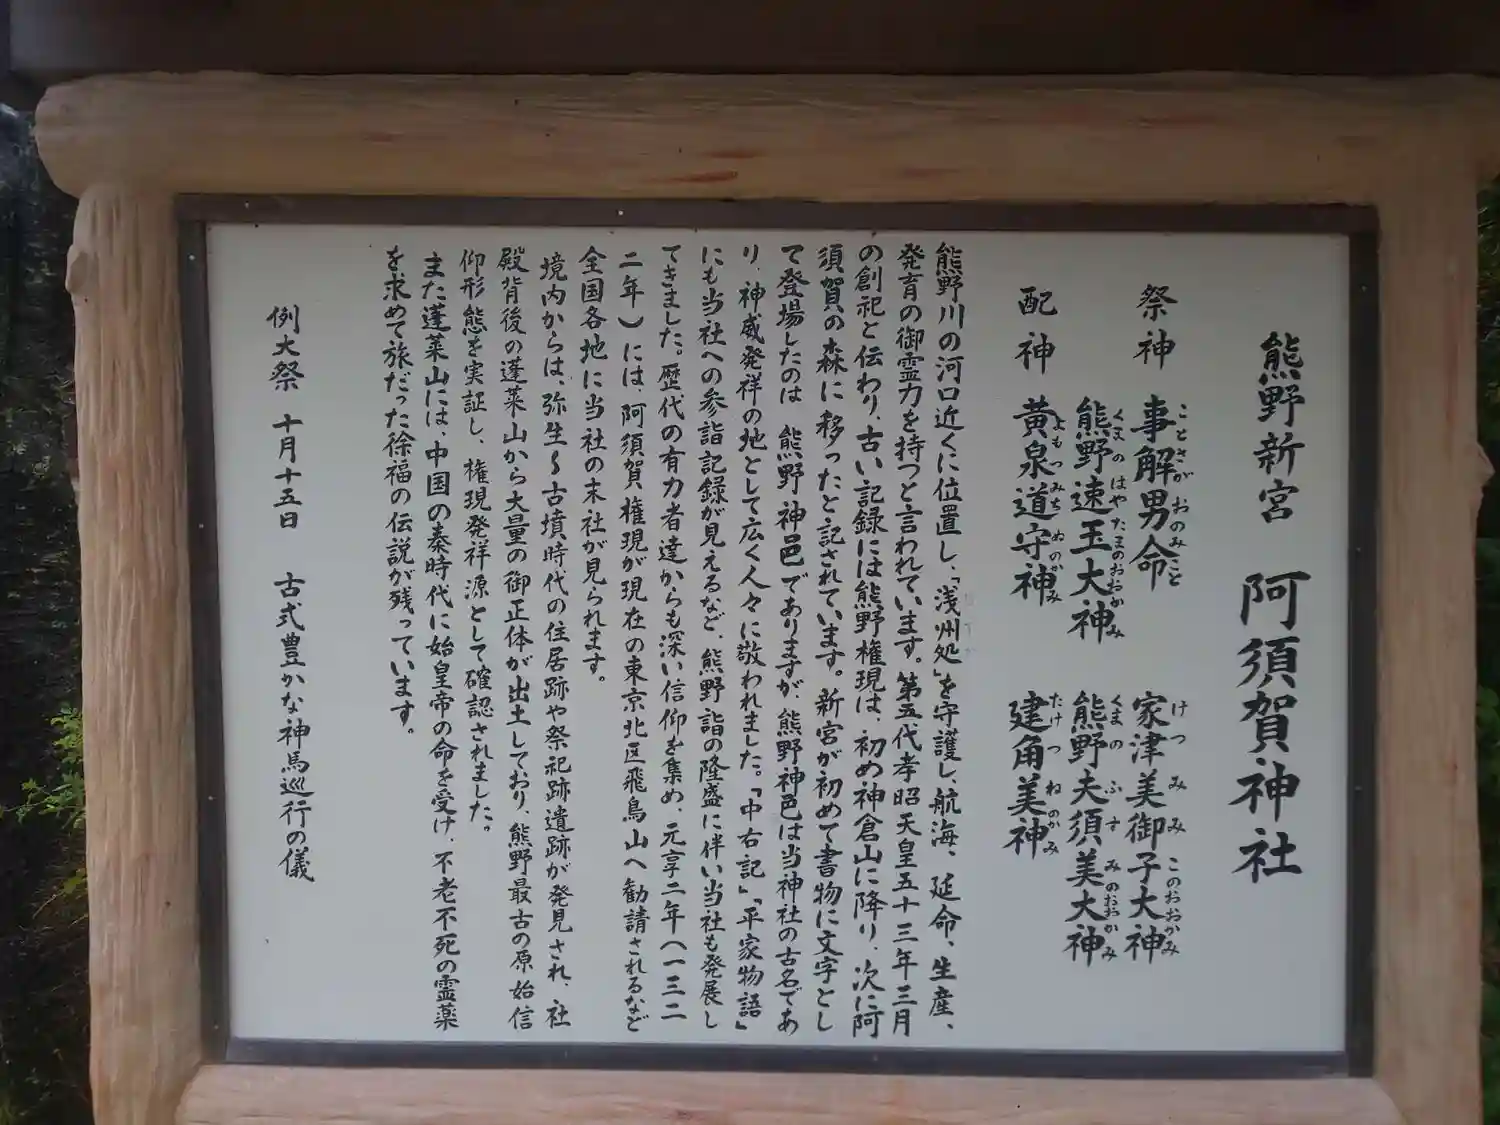 熊野新宮 阿須賀神社
祭神 事解男命 家津美御子大神
ことさかおのみこと けつみみこのおおかみ
熊野速玉大神 熊野夫須美大神
くまのはやたまのおおかみ くまのふすみのおおかみ
配神 黄泉道守神 建角美神
よもつみちものかみ たけつねのかみ
熊野川の河口近くに位置し、「浅州処」を守護し、航海、延命、生産、
発育の御霊力を持つと言われています。第五代孝昭天皇五十三年三月
の創祀と伝わり、古い記録には熊野権現は、初め神倉山に降り、次に阿
須賀の森に移ったと記されています。新宮が初めて書物に文字とし
て登場したのは、熊野神邑でありますが、熊野神邑は当神社の古名であ
り、神威発祥の地として広く人々に敬われました。「中右記」「平家物語」
にも当社への参詣記録が見えるなど、熊野詣の隆盛に伴い当社も発展し
てきました。歴代の有力者達からも深い信仰を集め、元享二年(一三二
二年)には、阿須賀権現が現在の東京北区飛鳥山へ勧請されるなど
全国各地に当社の末社が見られます。
境内からは、弥生～古墳時代の住居跡や祭祀跡遺跡が発見され、社
殿背後の蓬莱山から大量の御正体が出土しており、熊野最古の原始信
仰形態を実証し、権現発祥源として確認されました。
また蓬莱山には、中国の秦時代に始皇帝の命を受け、不老不死の霊薬
を求めて旅だった徐福の伝説が残っています。
例大祭 十月十五日 古式豊かな神馬巡行の儀